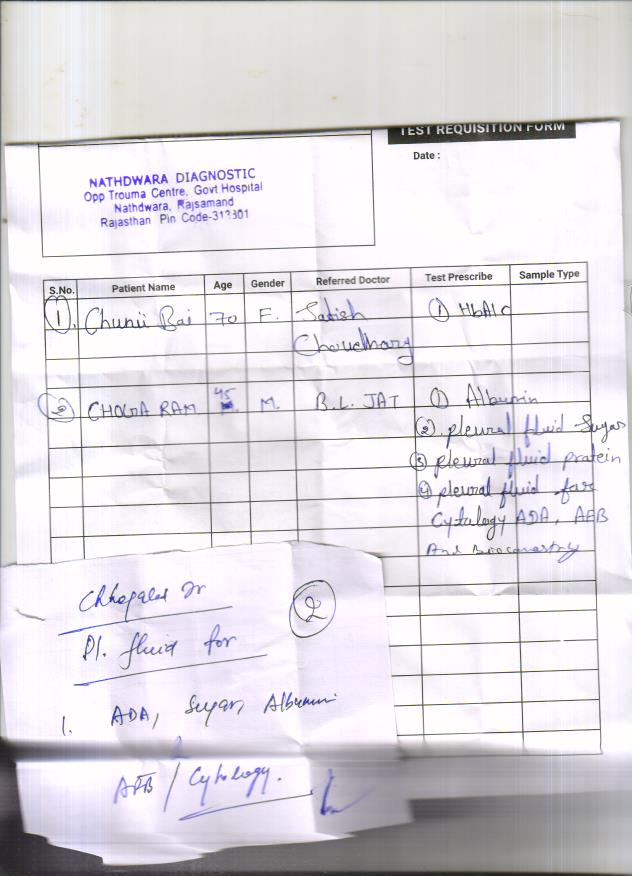 TEST REQUISITION FORM
Date :
NATHDWARA DIAGNOSTIC
Opp Trouma Centre, Govt Hospital
Nathdwara, Rajsamand
Rajasthan Pin Code-313301
S.No. Patient Name Age Gender Referred Doctor Test Prescribe Sample Type
1. Chunii Bai 70 F. Satish ① HbA1c
Choudhary
2 CHOGA RAM 45 M. B.L. JAT ① Albumin
② pleural fluid Sugar
③ pleural fluid protein
④ pleural fluid for
Cytology ADA, AFB
And
Pl. fluid for
2
1. ADA, Sugar, Albumin
AFB / Cytology.